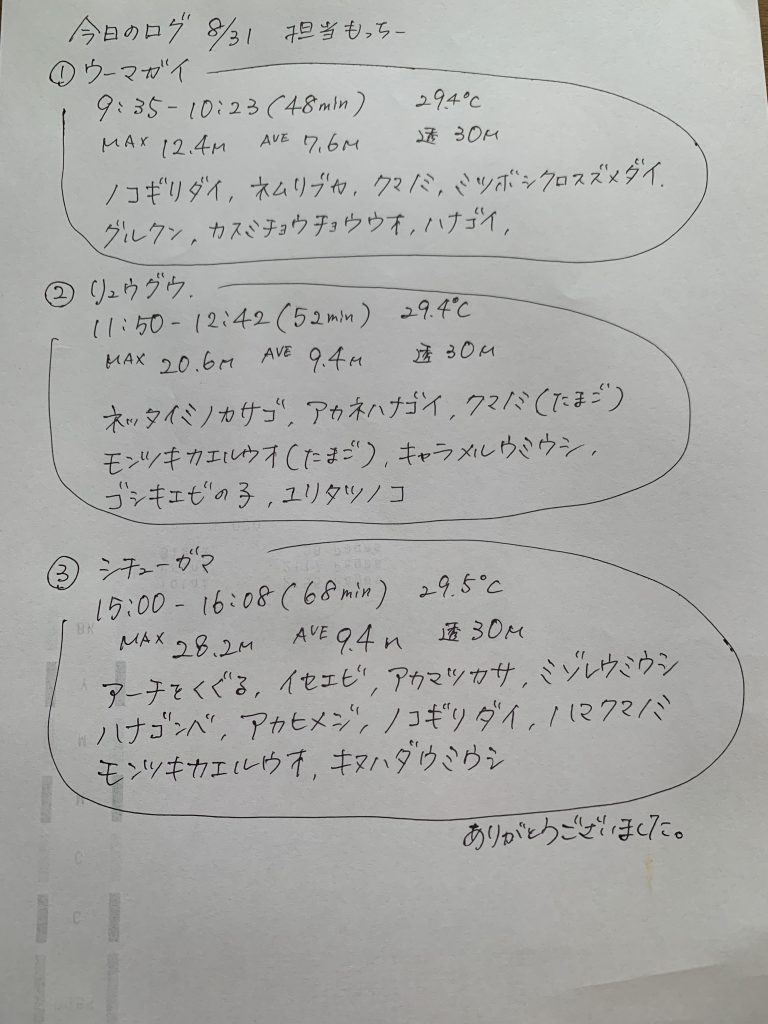 今日のログ 8/31 担当もっちー
① ウーマガイ
9:35-10:23(48min) 29.4℃
MAX 12.4M AVE 7.6M 透 30M
ノコギリダイ, ネムリブカ, クマノミ, ミツボシクロスズメダイ.
グルクン, カスミチョウチョウウオ, ハナゴイ,
② リュウグウ.
11:50-12:42(52min) 29.4℃
MAX 20.6M AVE 9.4M 透 30M
ネッタイミノカサゴ, アカネハナゴイ, クマノミ(たまご)
モンツキカエルウオ(たまご), キャラメルウミウシ,
ゴシキエビの子, ユリタツノコ
③ シチューガマ
15:00-16:08(68min) 29.5℃
MAX 28.2M AVE 9.4m 透 30M
アーチをくぐる, イセエビ, アカマツカサ, ミゾレウミウシ
ハナゴンベ, アカヒメジ, ノコギリダイ, ハマクマノミ
モンツキカエルウオ, キヌハダウミウシ
ありがとうございました。